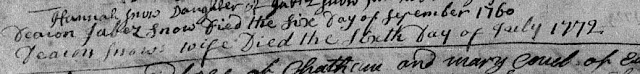 Hannah Snow Daughter of Jabez Snow
Deacon Jabez Snow Died the six Day of September 1760
Deacon Snows wife Died the sixth Day of July 1772
of Chatham and mary Covel of